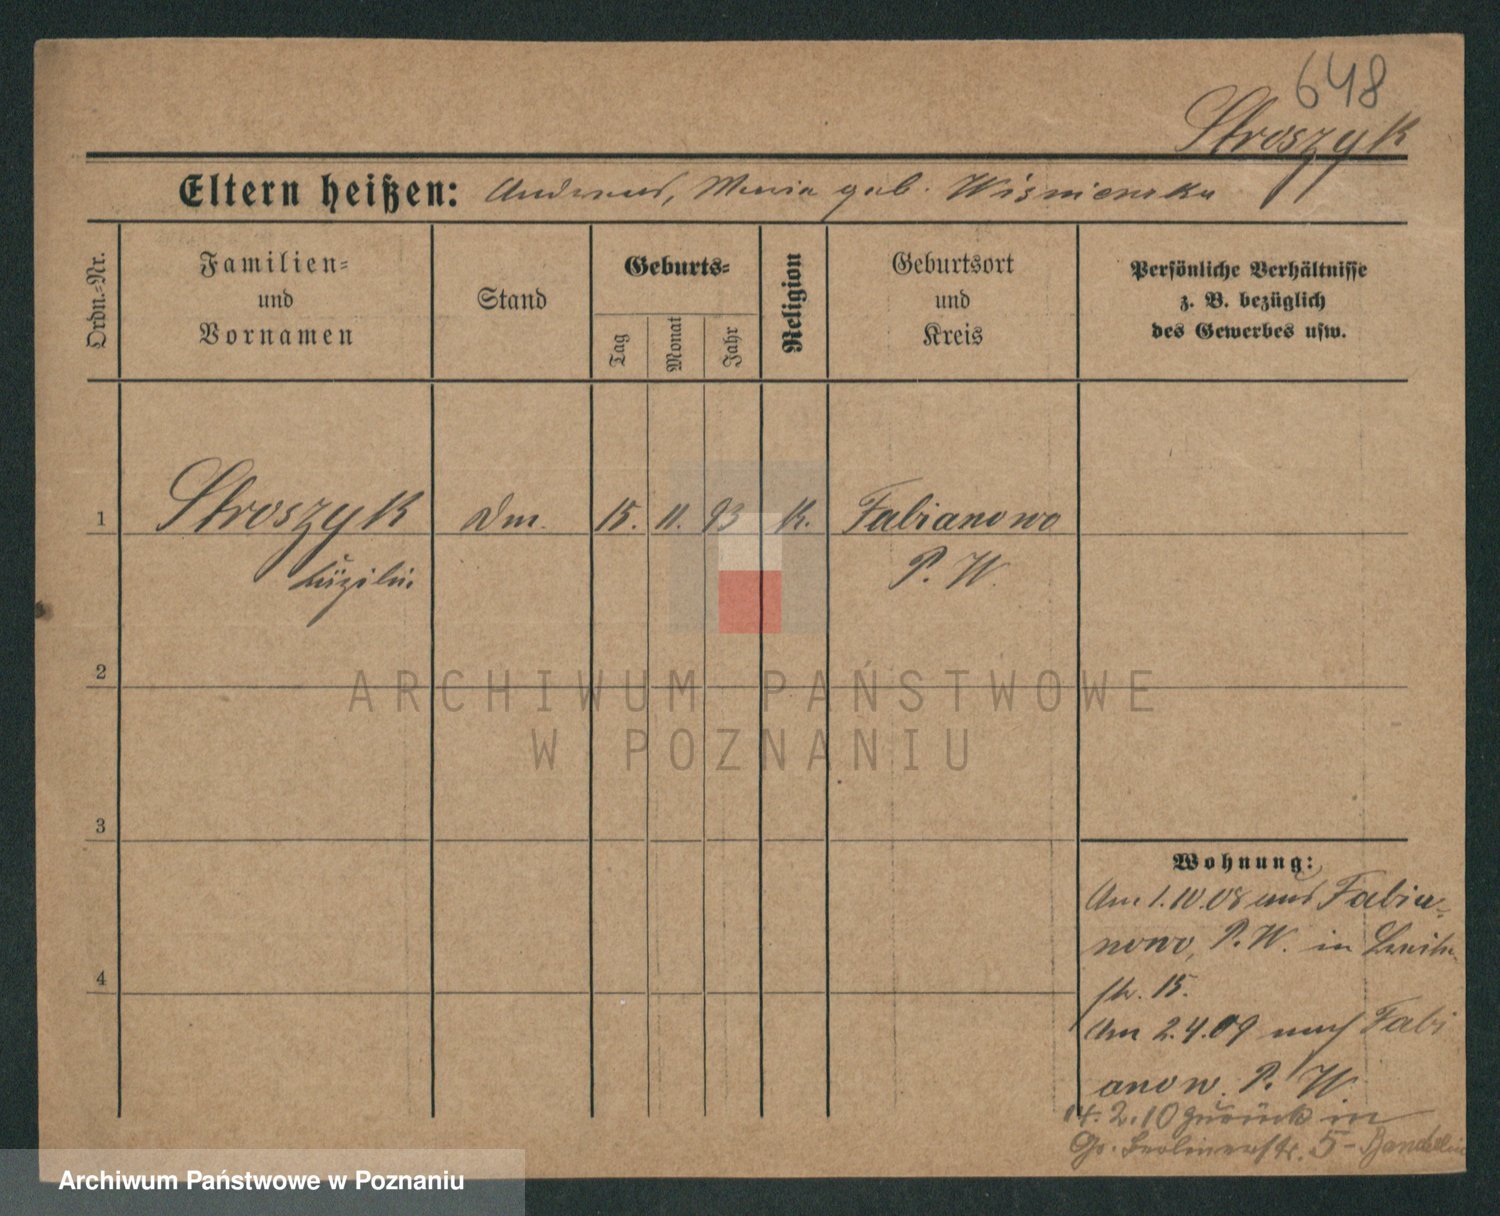 648
Stroszyk
Eltern heißen: Andreas, Maria geb. Wisniewska
Ordn.-Nr.
Familien-
und
Vornamen
Stand
Geburts-
Tag
Monat
Jahr
Religion
Geburtsort
und
Kreis
Persönliche Verhältnisse
z. B. bezüglich
des Gewerbes usw.
1 Stroszyk 15. 11. 93 k. Fabianowo
P. W.
2
ARCHIWUM PAŃSTWOWE
W POZNANIU
3
4
Wohnung:
Am 1.10.08 aus Fabia-
nowo, P. W. in
str. 15.
Am 2.4.09 nach Fabi
anow. P. W.
14. 2. 10 zurück in
Gr. Berlinerstr. 5 -
Archiwum Państwowe w Poznaniu